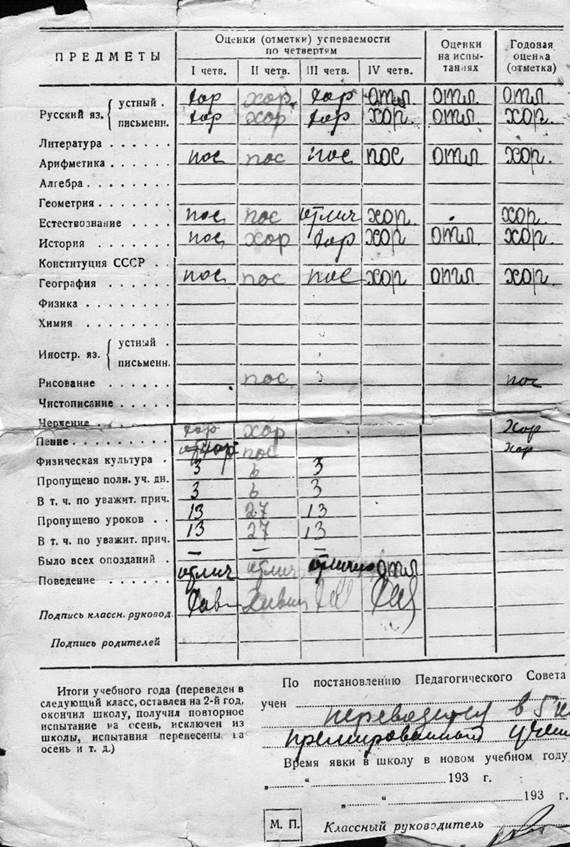 ПРЕДМЕТЫ Оценки (отметки) успеваемости по четвертям Оценки на испытаниях Годовая оценка (отметка)
I четв. II четв. III четв. IV четв.
Русский яз. { устный . хор хор. хор отл отл отл
письменн. хор хор хор хор. отл хор.
Литература . . . . . .
Арифметика . . . . . . пос пос пос пос отл хор.
Алгебра . . . . . . . .
Геометрия . . . . . . .
Естествознание . . . . пос пос отлич хор. . хор.
История . . . . . . . . пос хор хор хор. отл хор.
Конституция СССР . . .
География . . . . . . . пос пос пос хор отл хор.
Физика . . . . . . . .
Химия . . . . . . . .
Иностр. яз. { устный .
письменн.
Рисование . . . . . . пос. пос
Чистописание . . . . .
Черчение . . . . . . .
Пение . . . . . . . . хор хор хор
Физическая культура . хор пос хор
Пропущено полн. уч. дн. 3 6 3
В т. ч. по уважит. прич. 3 6 3
Пропущено уроков . . 13 27 13
В т. ч. по уважит. прич. 13 27 13
Было всех опозданий . – –
Поведение . . . . . . отлич отлич отлично отл
Подпись классн. руковод.
Подпись родителей
Итоги учебного года (переведен в
следующий класс, оставлен на 2-й год,
окончил школу, получил повторное
испытание на осень, исключен из
школы, испытания перенесены на
осень и т. д.)
По постановлению Педагогического Совета
учен переводится в 5
премированный
Время явки в школу в новом учебном году
„ “ 193 г.
„ “ 193 г.
М. П. Классный руководитель